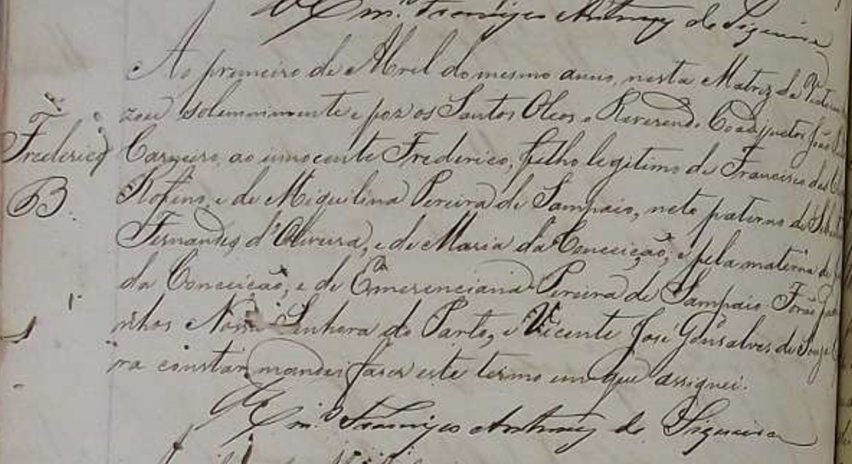 Francisco Antunes de Siqueira
Ao primeiro de Abril do mesmo anno, nesta Matriz da
zou solemnimente e poz os Santos Oleos o Reverendo Coadjuctor João
Frederico Carneiro, ao innocente Frederico, filho legitimo de Francisco das
B. Rofino, e de Miquilina Pereira de Sampaio, neto paterno de
Fernandes d'Oliveira, e de Maria da Conceição, e pela materna de
da Conceição, e de Emerenciana Pereira de Sampaio. Forão
nhos Nossa Senhora do Parto, e Vicente José Gonsalves de Souza
ra constar mandei faser este termo em que assignei.
Francisco Antunes de Siqueira